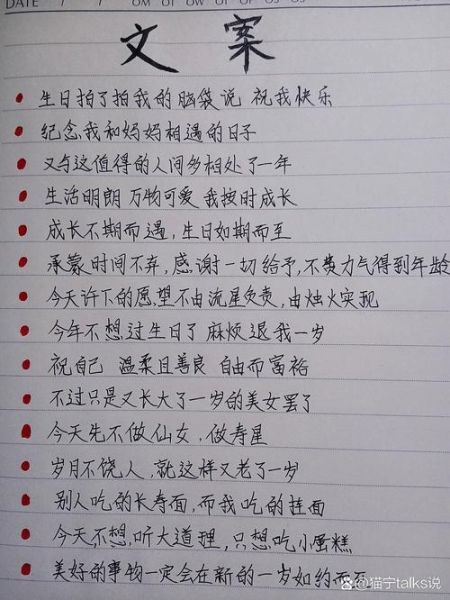 DATE / /
文案
生日拍了拍我的脑袋说 祝我快乐
纪念我和妈妈相遇的日子
又与这值得的人间多相处了一年
生活明朗 万物可爱 我按时成长
成长不期而遇,生日如期而至
承蒙时间不弃,感谢一切给予,不费力气得到年龄
今天许下的愿望不由流星负责,由烛火实现
今年不想过生日了 麻烦退我一岁
祝自己 温柔且善良 自由而富裕
不过只是又长大了一岁的美女罢了
今天先不做仙女,做寿星
岁月不饶人,就这样又老了一岁
别人吃的长寿面,而我吃的挂面
今天不想听大道理,只想吃小蛋糕
美好的事物一定会在新的一岁如约而至
@猫宁talks说